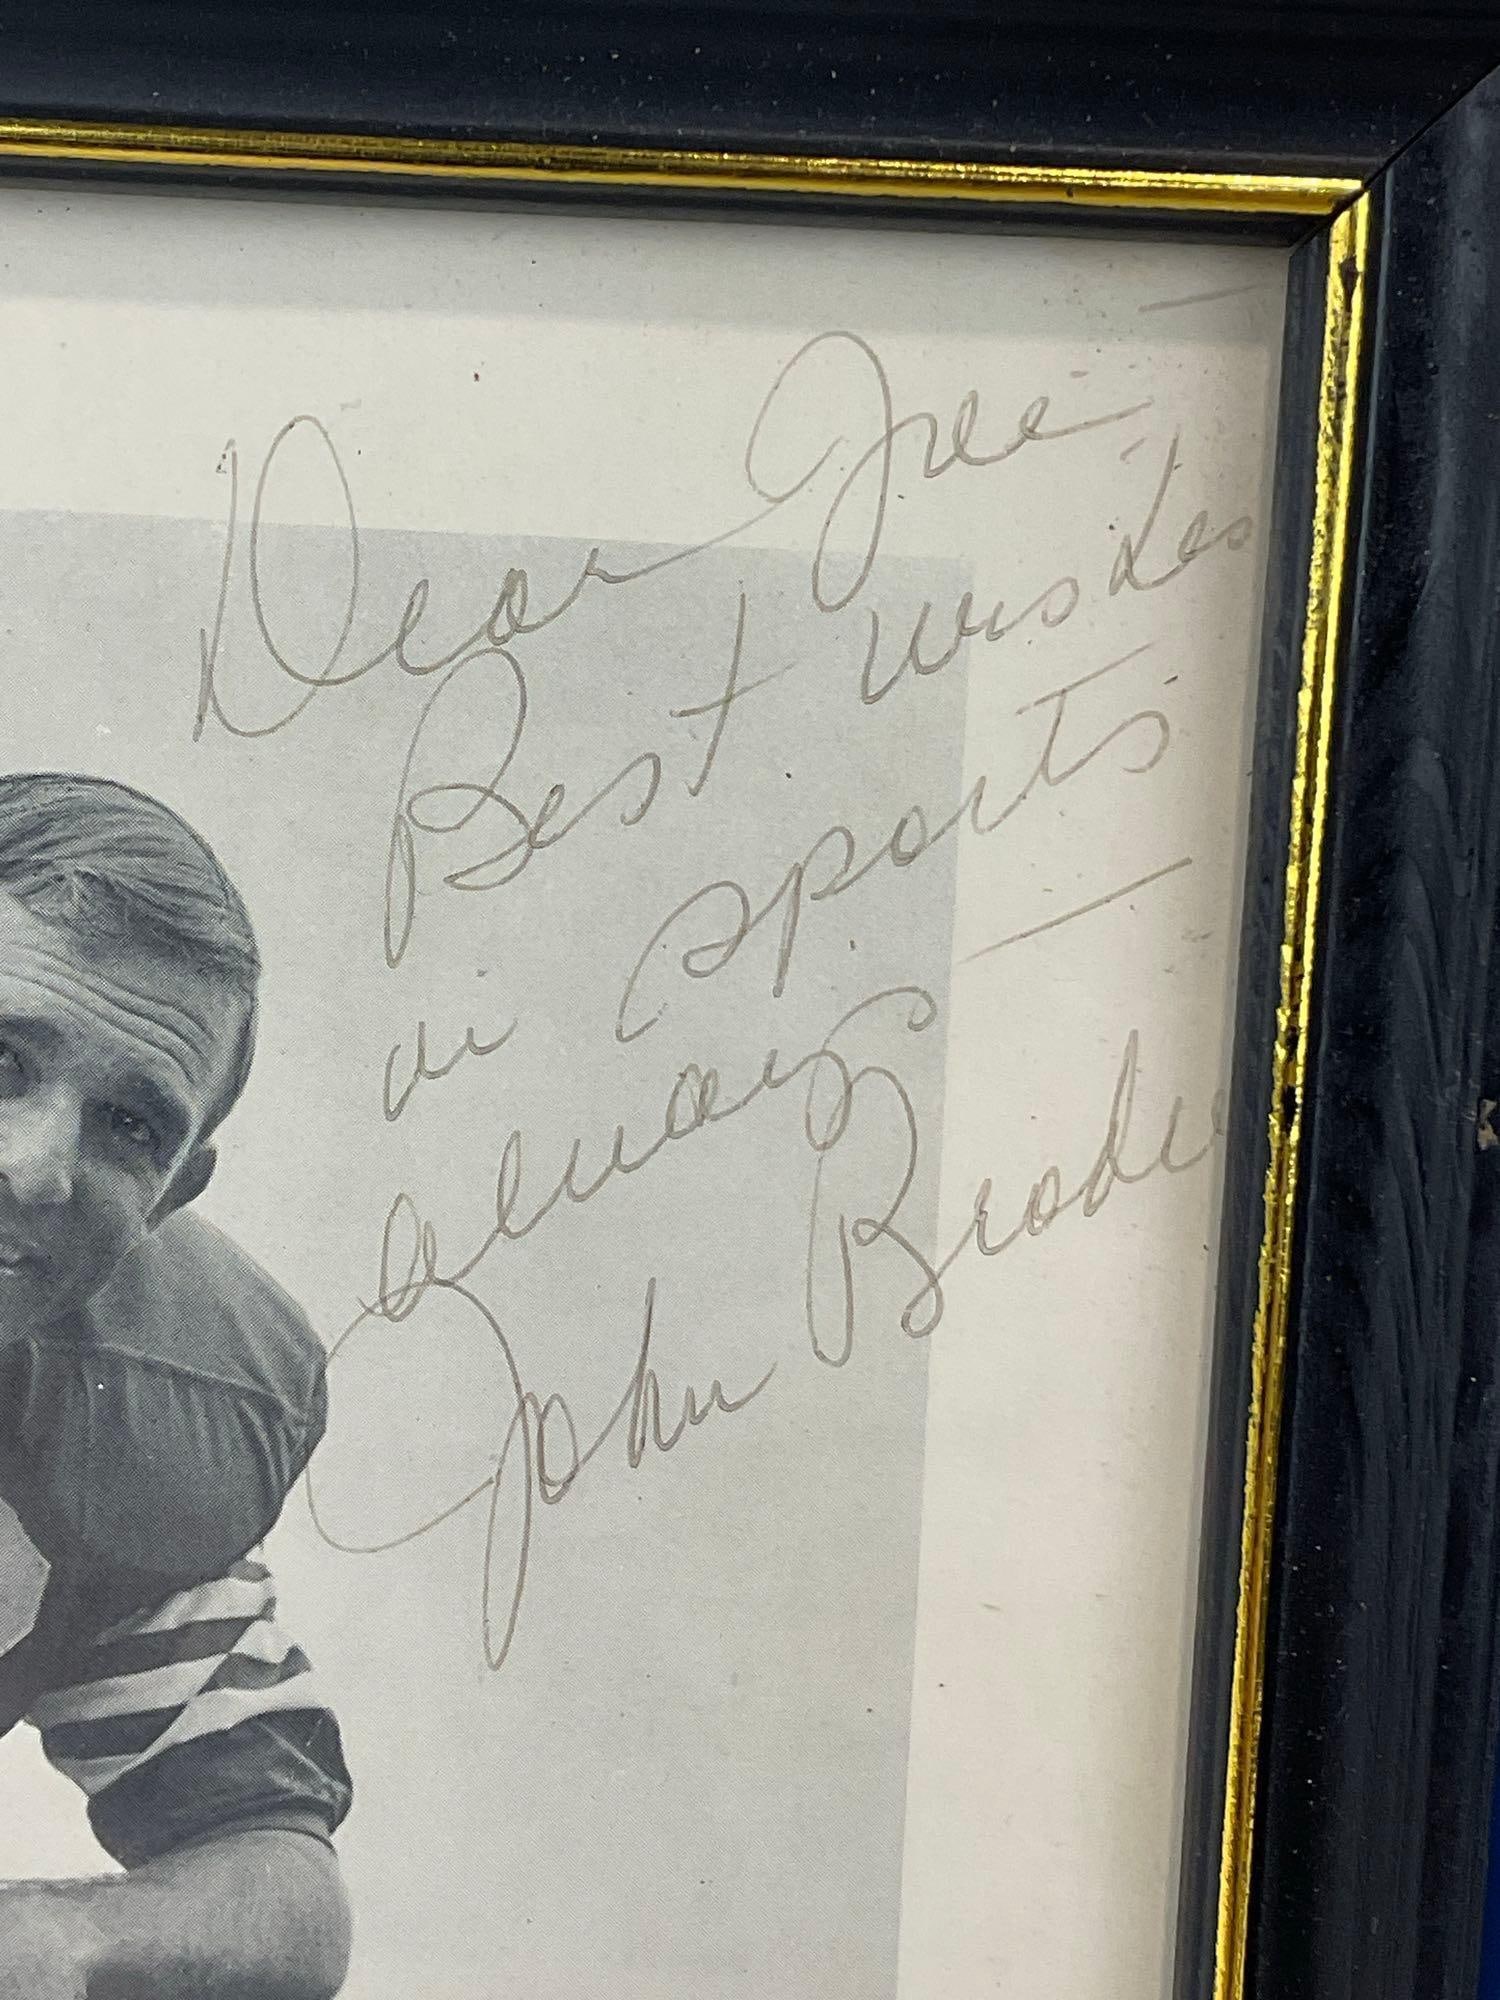 Dear
Best wishes
in sports
always
John Brodie